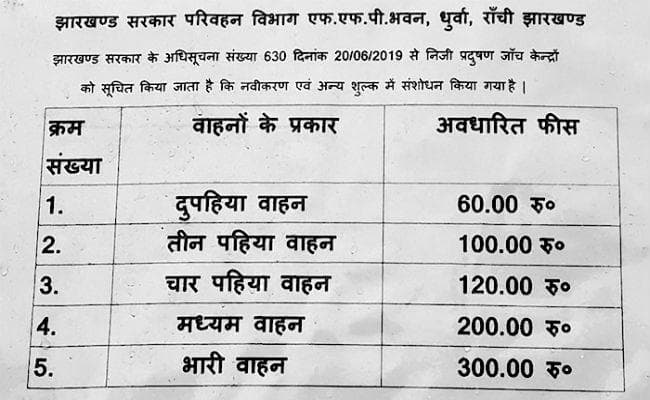 झारखण्ड सरकार परिवहन विभाग एफ.एफ.पी.भवन, धुर्वा, राँची झारखण्ड
झारखण्ड सरकार के अधिसूचना संख्या 630 दिनांक 20/06/2019 से निजी प्रदुषण जाँच केन्द्रों
को सूचित किया जाता है कि नवीकरण एवं अन्य शुल्क में संशोधन किया गया है |
क्रम संख्या वाहनों के प्रकार अवधारित फीस
1. दुपहिया वाहन 60.00 रु०
2. तीन पहिया वाहन 100.00 रु०
3. चार पहिया वाहन 120.00 रु०
4. मध्यम वाहन 200.00 रु०
5. भारी वाहन 300.00 रु०